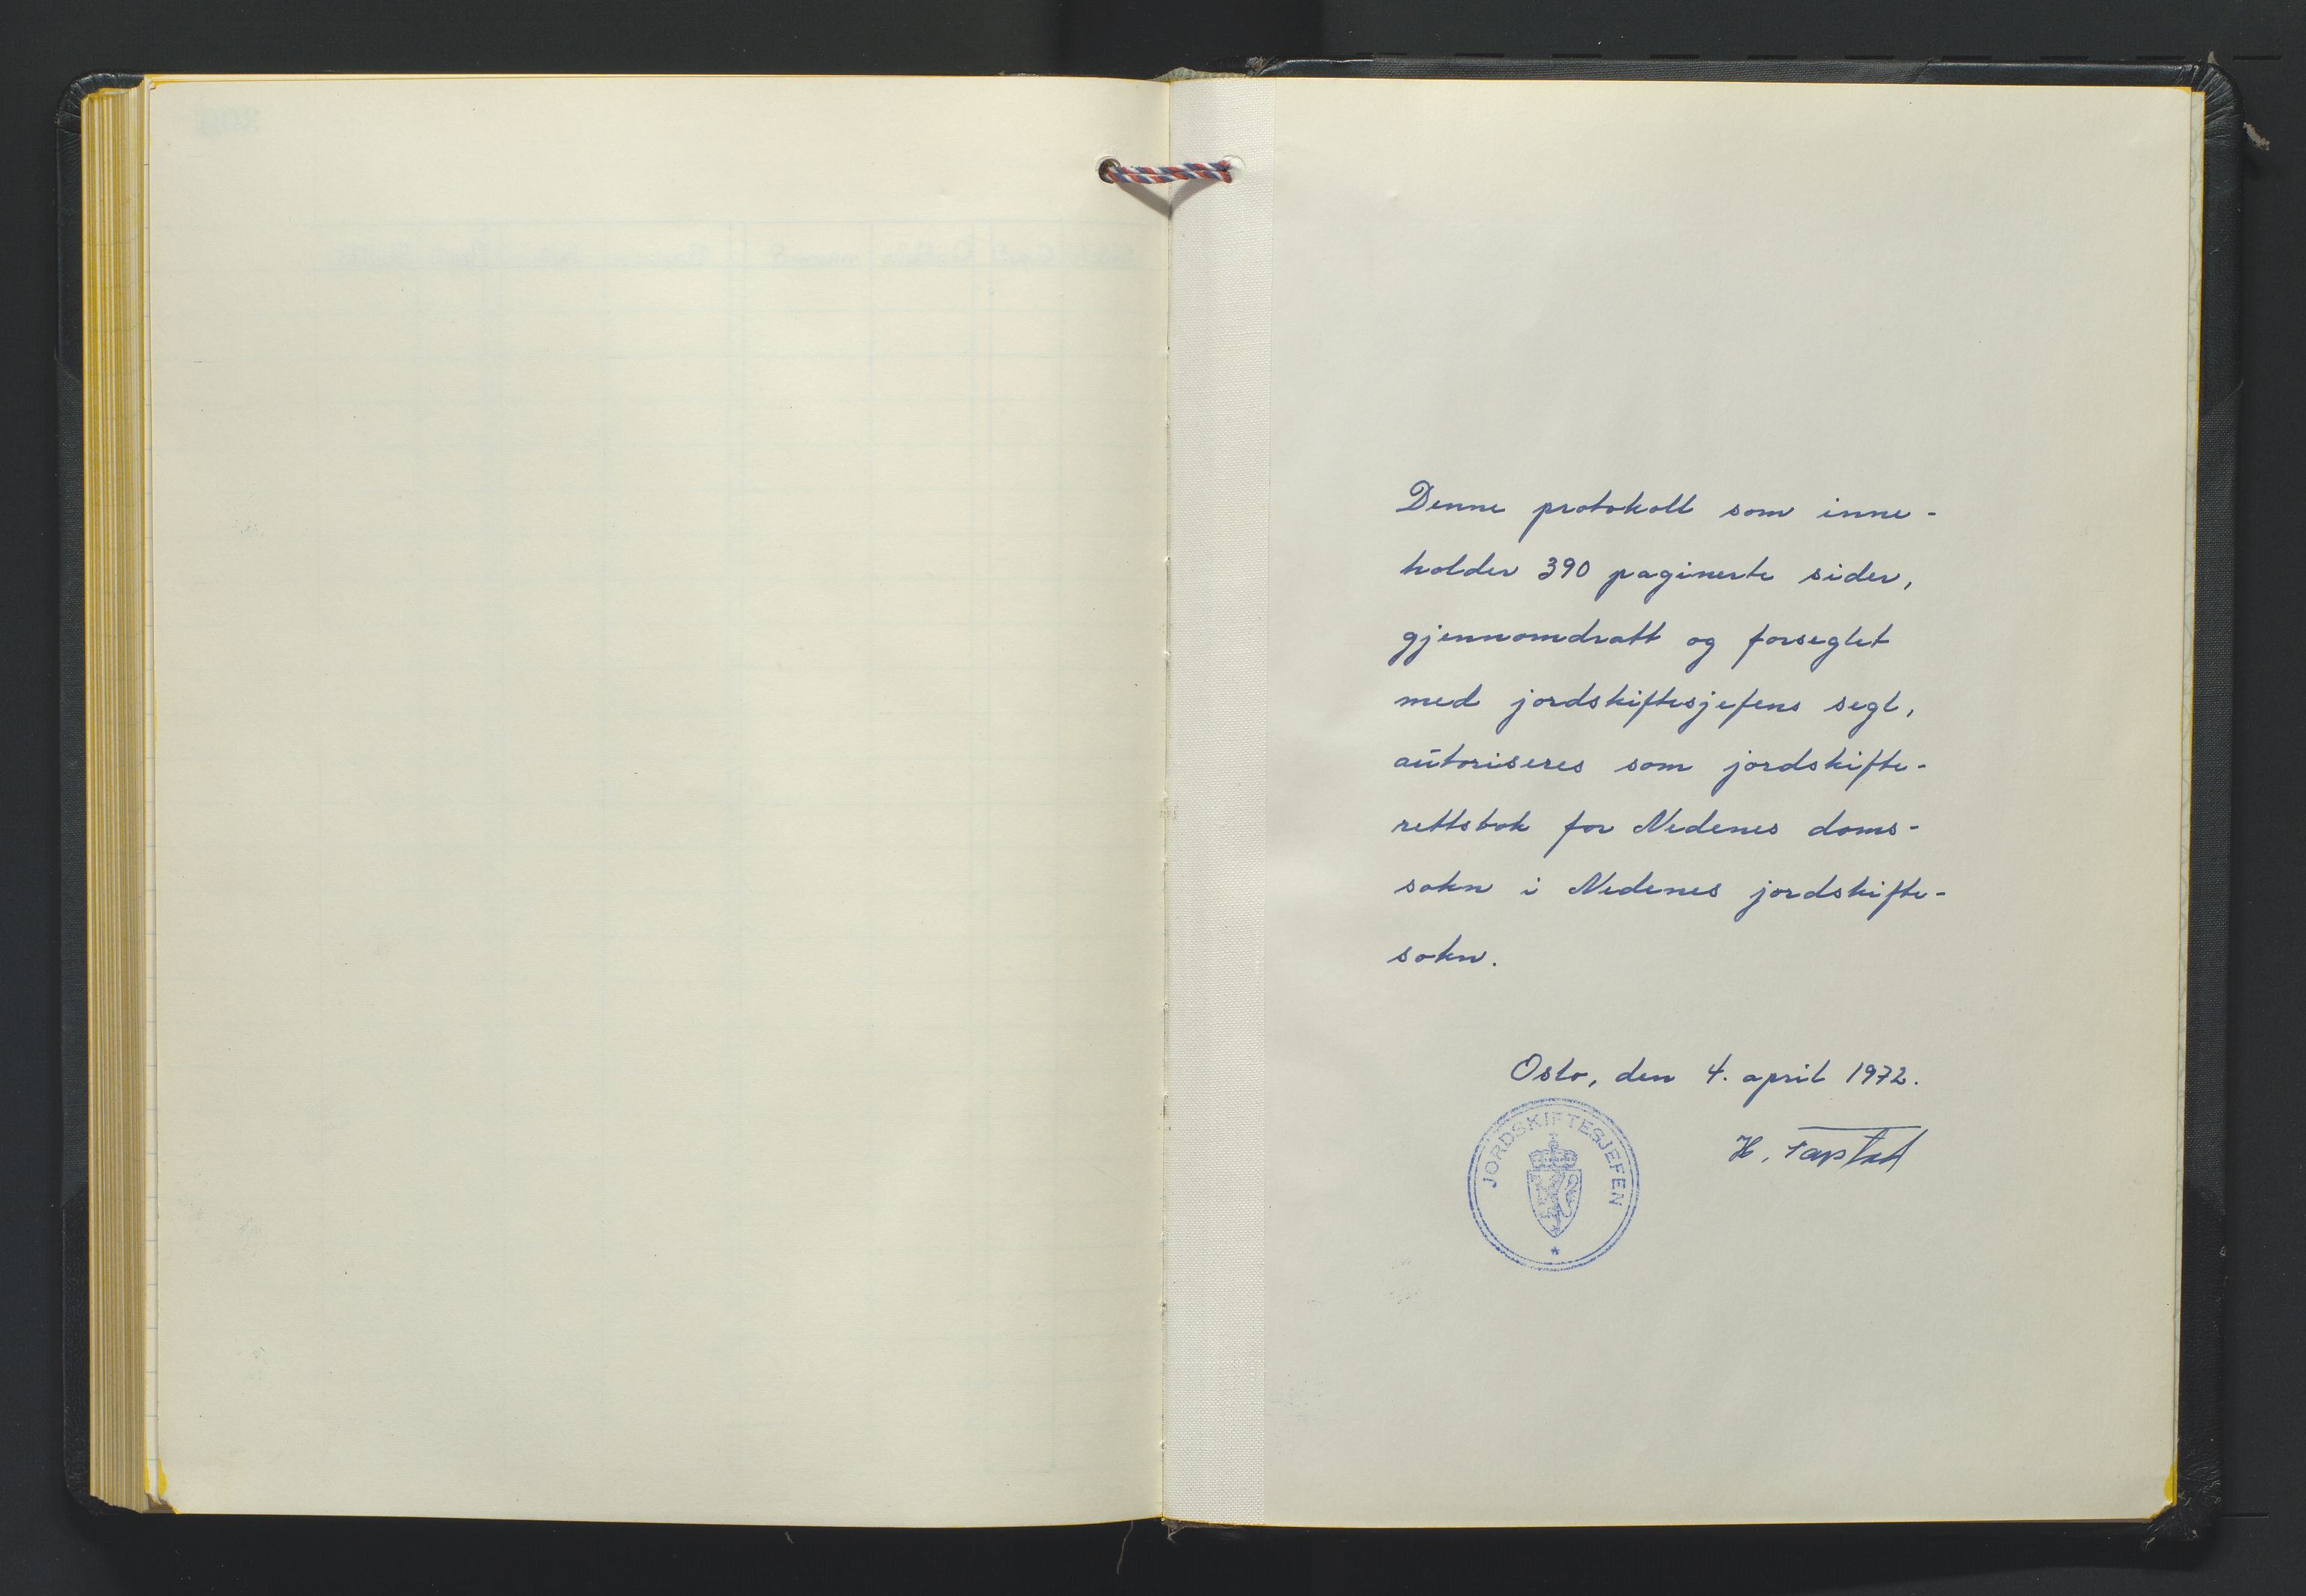 Denne protokoll som inne-
holder 390 paginerte sider,
gjennomdratt og forseglet
med jordskiftesjefens segl,
autoriseres som jordskifte-
rettsbok for Nedenes doms-
sokn i Nedenes jordskifte-
sokn.
Oslo, den 4. april 1972.
H.
JORDSKIFTESJEFEN